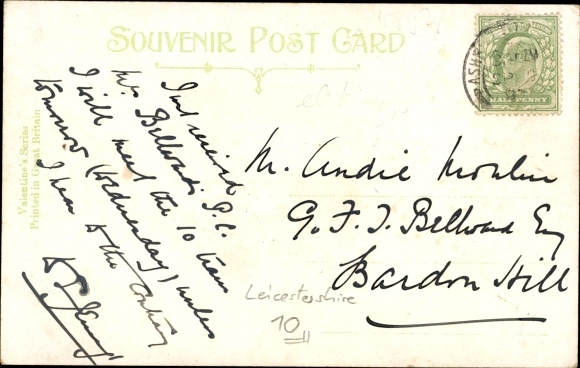 SOUVENIR POST CARD
Valentine's Series
Printed in Great Britain
HALF PENNY
Just received
Mr Bellward's P.C.
I will meet the 10 train
tomorrow (Wednesday) unless
I hear to the contrary
M. André Moulin
G. F. J. Bellward Esq
Bardon Hill
Leicestershire
10